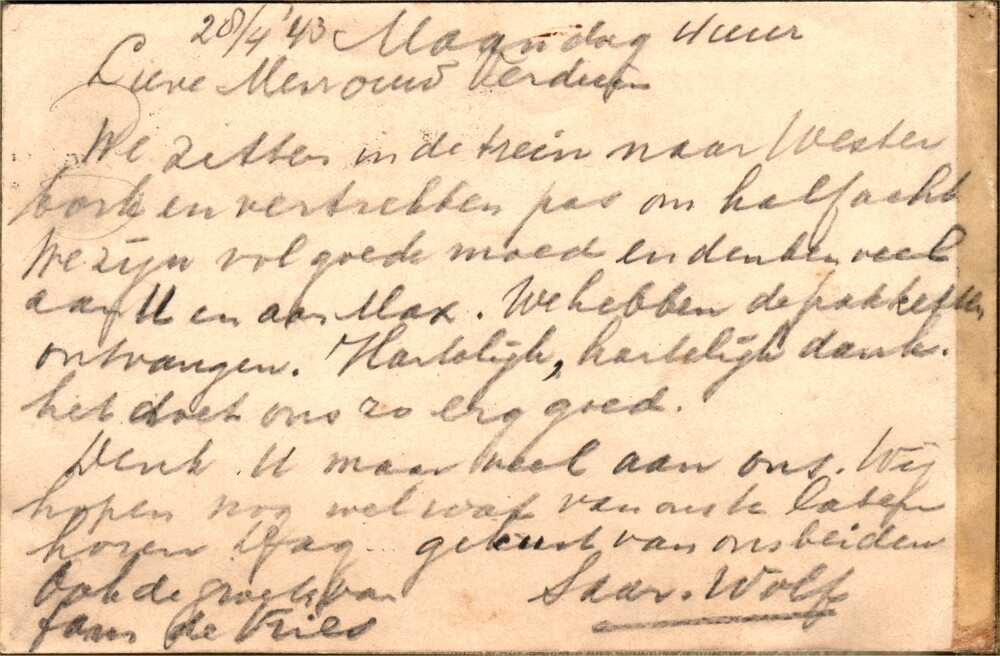 28/4 '43 Maandag 4 uur
Lieve Mevrouw Verduin
We zitten in de trein naar Wester
bork en vertrekken pas om half acht
We zijn vol goede moed en denken veel
aan U en aan Max. We hebben de pakketten
ontvangen. Hartelijk, hartelijk dank.
het doet ons zo erg goed.
Denk U maar veel aan ons. Wij
hopen nog wel wat van ons te laten
horen Dag gekust van ons beiden
Ook de groeten van Saar. Wolf
fam de Vries